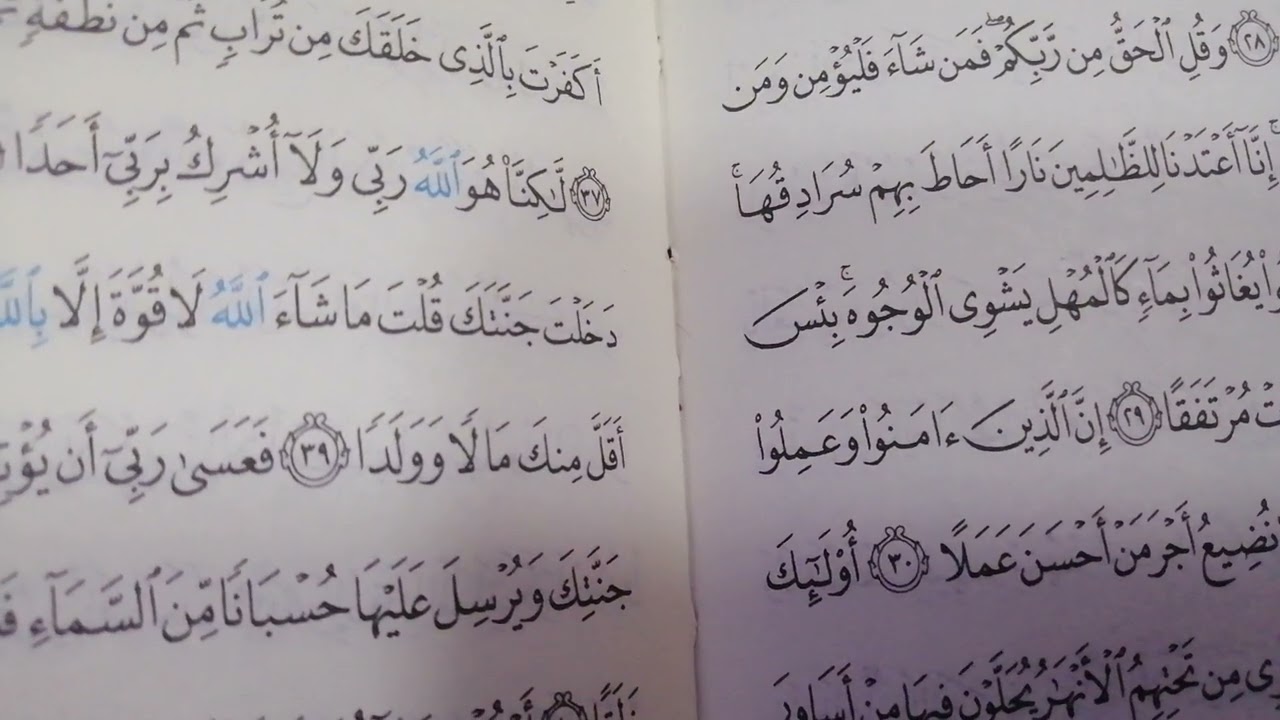 ٢٨ وَقُلِ ٱلْحَقُّ مِن رَّبِّكُمْۖ فَمَن شَآءَ فَلْيُؤْمِن وَمَن
إِنَّآ أَعْتَدْنَا لِلظَّٰلِمِينَ نَارًا أَحَاطَ بِهِمْ سُرَادِقُهَاۚ
يُغَاثُوا۟ بِمَآءٍ كَٱلْمُهْلِ يَشْوِى ٱلْوُجُوهَۚ بِئْسَ
مُرْتَفَقًا ٢٩ إِنَّ ٱلَّذِينَ ءَامَنُوا۟ وَعَمِلُوا۟
نُضِيعُ أَجْرَ مَنْ أَحْسَنَ عَمَلًا ٣٠ أُو۟لَٰٓئِكَ
مِن تَحْتِهِمُ ٱلْأَنْهَٰرُ يُحَلَّوْنَ فِيهَا مِنْ أَسَاوِرَ
أَكَفَرْتَ بِٱلَّذِى خَلَقَكَ مِن تُرَابٍ ثُمَّ مِن نُّطْفَةٍ
٣٧ لَّٰكِنَّا۠ هُوَ ٱللَّهُ رَبِّى وَلَآ أُشْرِكُ بِرَبِّىٓ أَحَدًا
دَخَلْتَ جَنَّتَكَ قُلْتَ مَا شَآءَ ٱللَّهُ لَا قُوَّةَ إِلَّا
أَقَلَّ مِنكَ مَالًا وَوَلَدًا ٣٩ فَعَسَىٰ رَبِّىٓ أَن
جَنَّتِكَ وَيُرْسِلَ عَلَيْهَا حُسْبَانًا مِّنَ ٱلسَّمَآءِ